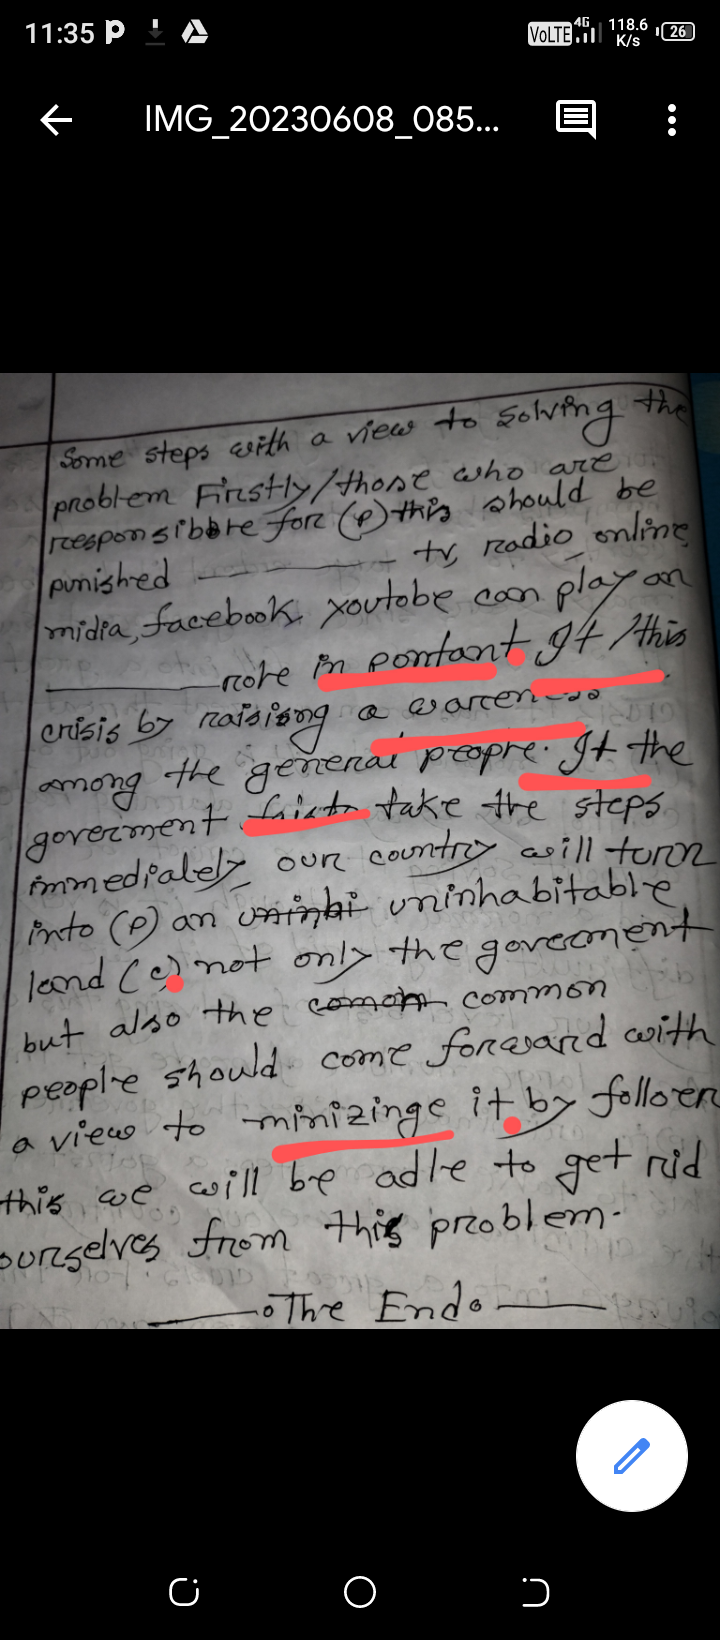 11:35
VoLTE 4G 118.6 K/s 26
IMG_20230608_085...
Some steps with a view to solving the
problem Firstly/those who are
responsibbre for (p) this should be
punished ———— tv, radio, online
midia, facebook, youtobe can play an
———— role in pontant. It / this
crisis by raising a warrenss
among the general peopre. It the
goverment take the steps
immedialely, our country will turn
into (p) an uninhi uninhabitable
land (c) not only the goverment
but also the comon common
people should come forward with
a view to minizinge it. by follower
this we will be adle to get rid
ourselves from this problem.
The End